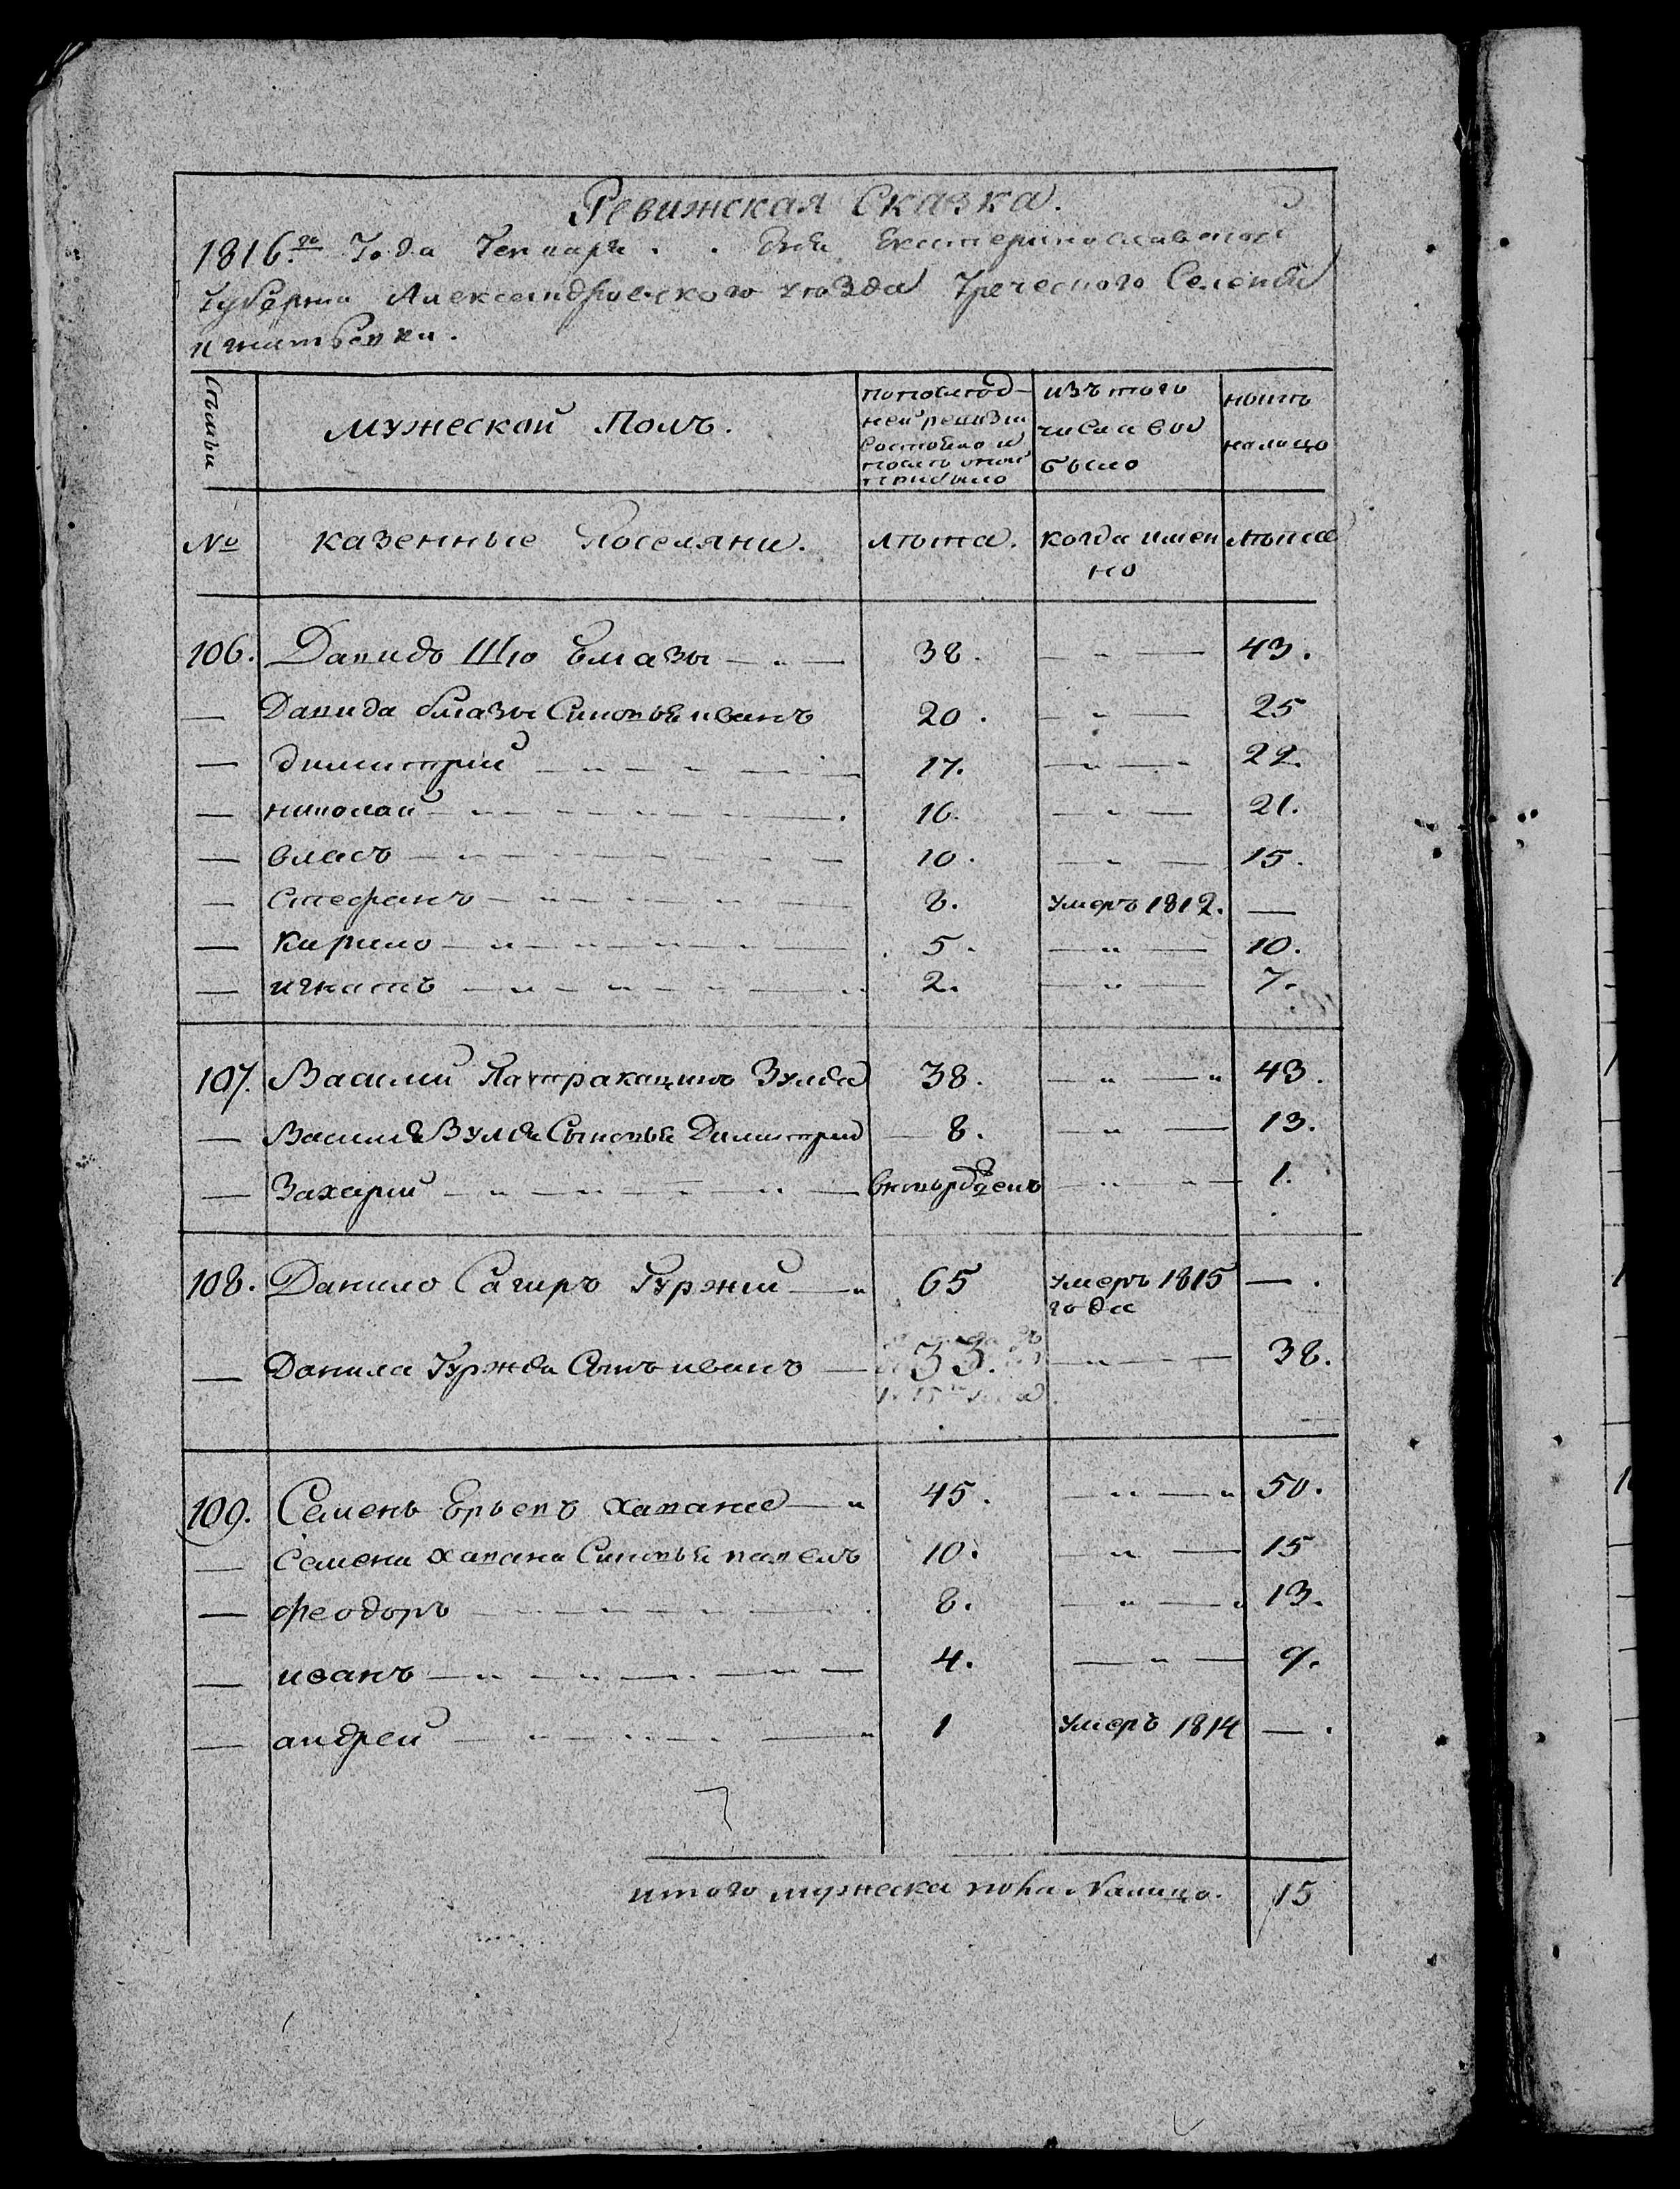 Ревижская Сказка.
1816.го Года Генваря . . дня Екатеринославской
Губернии Александровского уезда Греческого Селения
игнатьевки.
Семьи
мужеской Полъ.
по последней ревизии состояло и после оной прибыло
изъ того числа выбыло
ныне на лицо
№ казенные Поселяни. Лета. когда именно Лета
106. Давидъ Шю Елмазы — 38. — 43.
— Давида Елмазы Синовья иванъ 20. — 25
— димитрий — 17. — 22.
— николай — 16. — 21.
— власъ — 10. — 15.
— стефанъ — 8. умеръ 1812. —
— кирило — 5. — 10.
— игнатъ — 2. — 7.
107. Василий Патракацишъ Зулда 38. — 43.
— Василя Зулда Сыновья Димитрий — 8. — 13.
— Захарий — вновь рожденъ — 1.
108. Данило Сагиръ Гуржии — 65 умеръ 1815 года — .
— Данила Гуржи Сынъ иванъ — 33. — 38.
109. Семенъ Ерьевъ Хапание — 45. — 50.
— Семена Хапани Синовья павелъ 10. — 15
— феодоръ — 8. — 13.
— иванъ — 4. — 9.
— андрей — 1 умеръ 1814 — .
итого мужеска пола налицо. 15